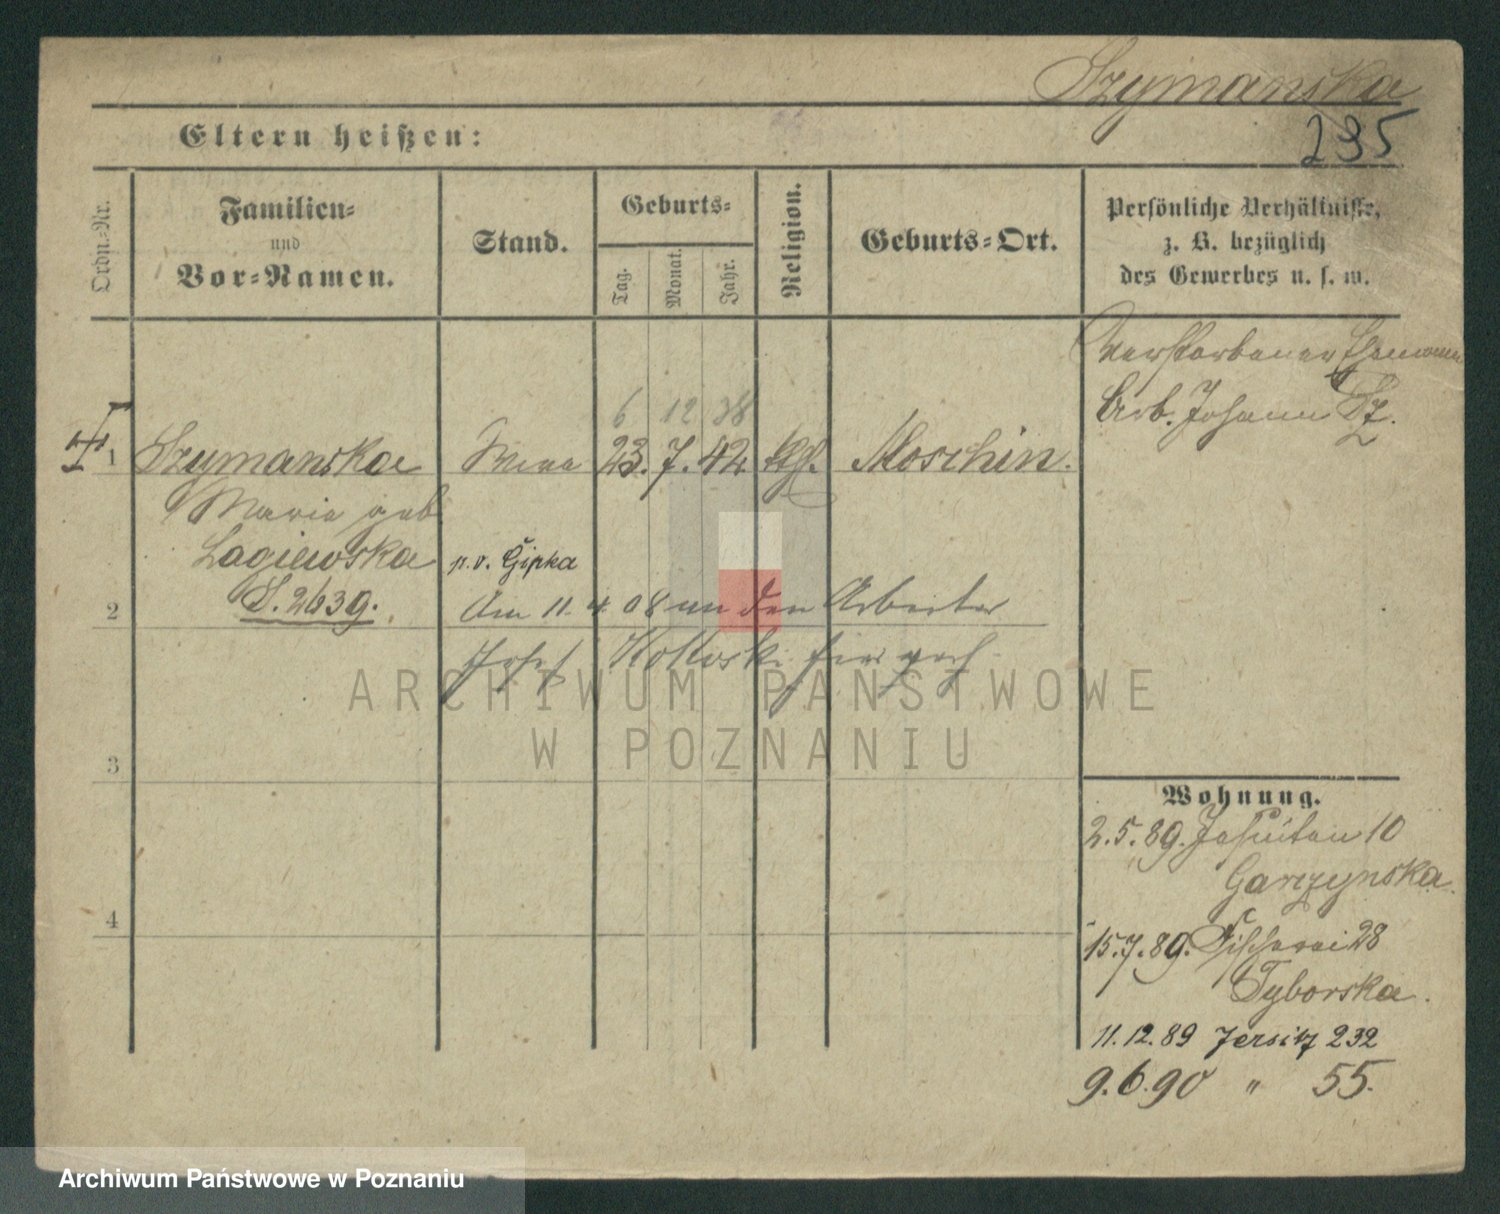 Szymanska
235
Eltern heißen:
Ordn.-Nr.
Familien-
und
Vor-Namen.
Stand.
Geburts-
Tag.
Monat.
Jahr.
Religion.
Geburts-Ort.
Persönliche Verhältnisse,
z. B. bezüglich
des Gewerbes u. s. w.
Verstorbener Ehemann
Arb. Johann Sz.
6 12 38
1 Szymanska Wwe 23. 7. 42 kth. Moschin.
Maria geb.
Lagiewska
n. v. Gipka
S. 2639.
2
Am 11. 4. 08 an den Arbeiter
Josef Kokoski hier
ARCHIWUM PAŃSTWOWE
W POZNANIU
3
4
Wohnung.
2.5.89. Jesuiten 10
Garzynska.
15.7.89. Fischerei 28
Tyborska.
11.12.89 Jersitz 232
9.6.90 " 55.
Archiwum Państwowe w Poznaniu